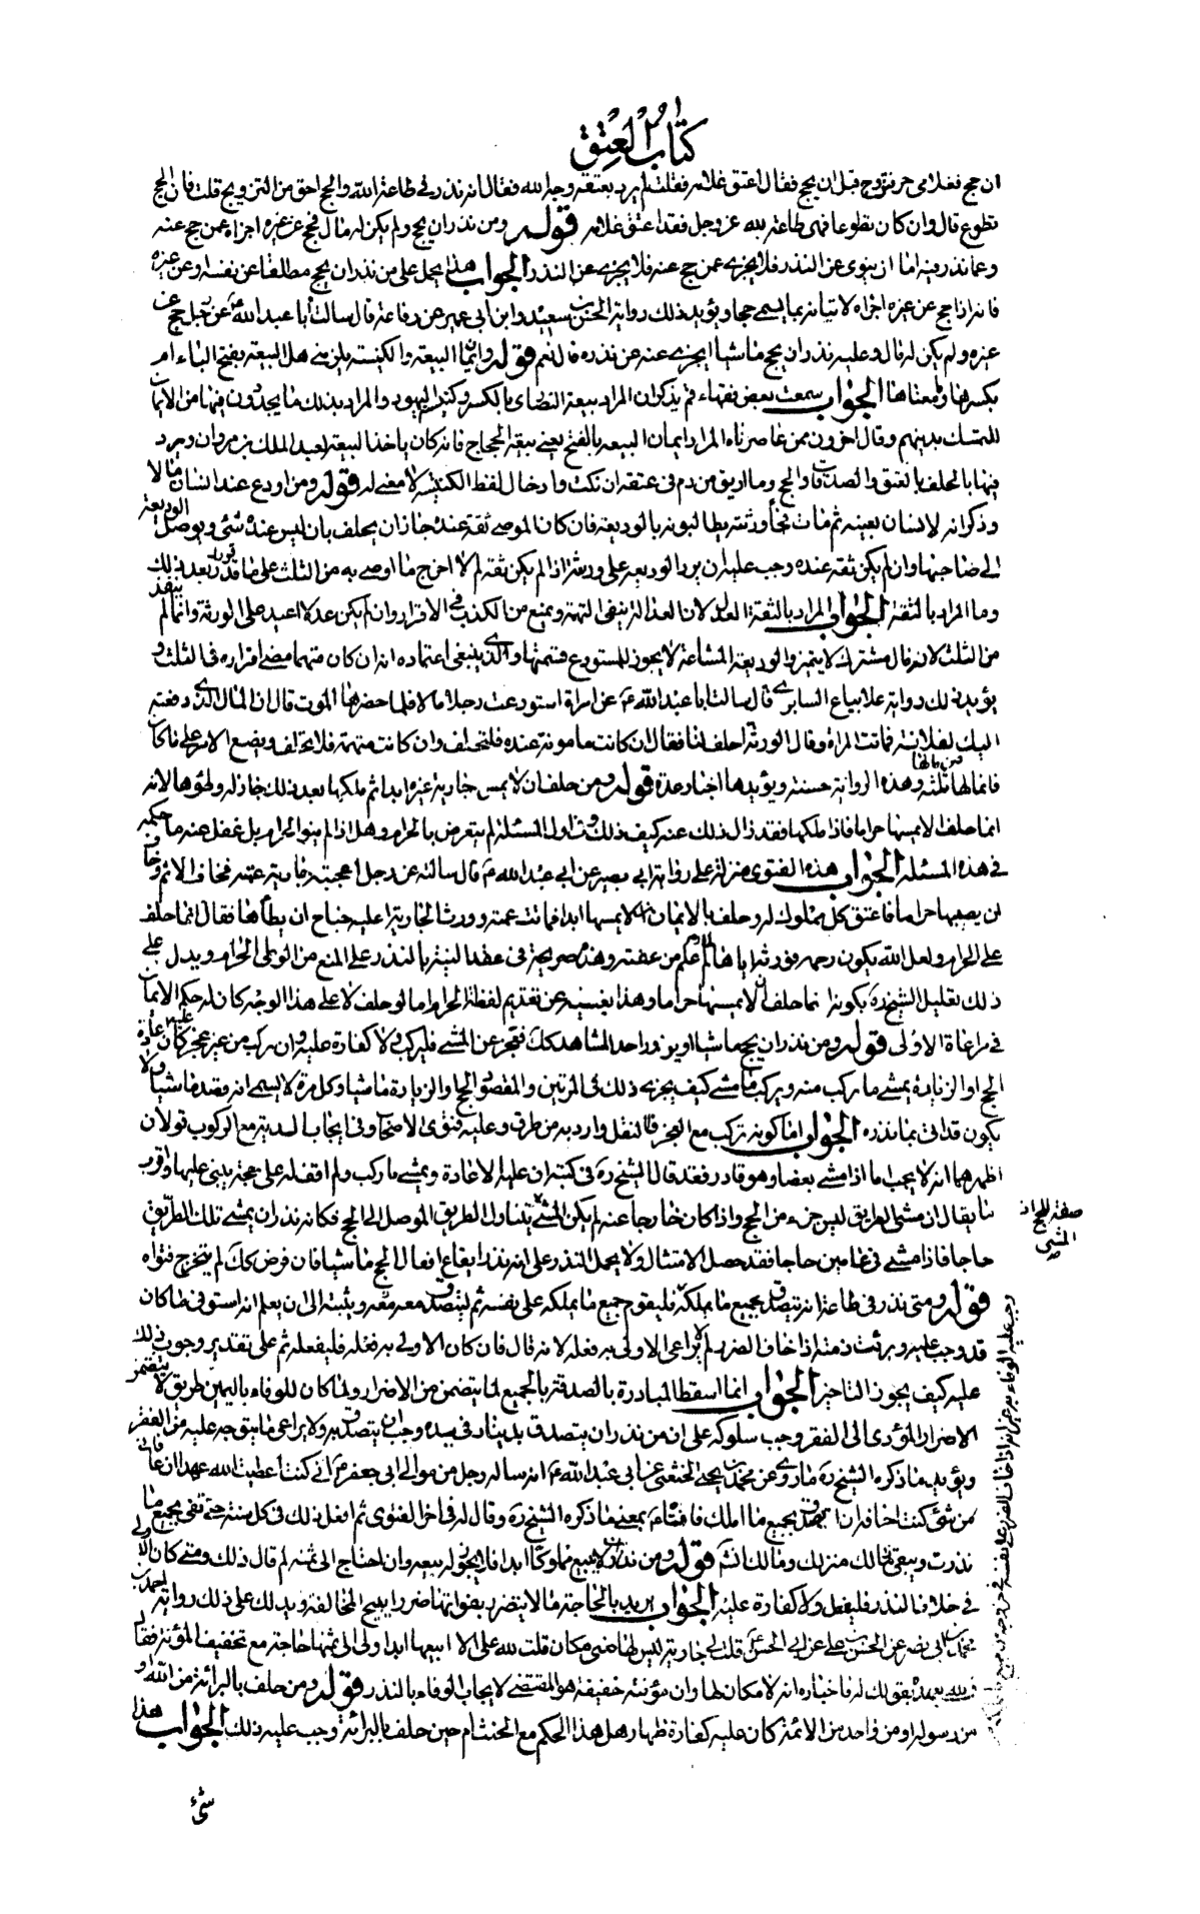 كتاب العتق
ان حج فغلامى حر فتزوج قبل ان يحج فقال اعتق غلامه فقلت لم يرد بعتقه وجه الله فقال انه نذر فى طاعة الله والحج احق من التزويج قلت فان الحج
تطوع قال وان كان تطوعا فهى طاعة لله عز وجل فقد اعتق غلامه قوله ومن نذر ان يحج ولم يكن له مال فحج عن غيره اجزاء عن حج عنه
وعما نذر فيه اما ان ينوى عن النذر فلا يجزى عمن حج عنه فلا يجزى عن النذر الجواب هذا يحمل على من نذر ان يحج مطلقا عن نفسه او عن غيره
فانه اذا حج عن غيره اجزاه لاتيانه بما يسمى حجا ويؤيد ذلك رواية الحسين بن سعيد وابن ابى عمير عن رفاعة قال سالت أبا عبد الله ع عن رجل حج عن
غيره ولم يكن له مال وعليه نذر ان يحج ماشيا ايجزى عنه عن نذره قال نعم قوله وايمان البيعة والكنيسة يلزمه هل البيعة بفتح الباء ام
بكسرها وما معناها الجواب سمعت بعض فقهاء قم يذكر ان المراد بيعة النصارى بالكسر وكنيسة اليهود والمراد بذلك ما يجدون فيها من الايمان
للتمسك بدينهم وقال اخرون ممن عاصرناه المراد ايمان البيعة بالفتح يعنى بيعة الحجاج فانه كان ياخذ البيعة لعبد الملك بن مروان ويرد
فيها بالحلف بالعتق والصدقات والحج وما اريق من دم فى عنقه ان نكث وادخال لفظ الكنيسة لا معنى له قوله ومن اودع عند انسان مالا
وذكر انه لانسان بعينه ثم مات فجاء ورثته يطالبونه بالوديعة فان كان الموصى ثقة عنده جاز ان يحلف بان ليس عنده شئ ويوصل الوديعة
الى صاحبها وان لم يكن ثقة عنده وجب عليه ان يرد الوديعة على ورثته اذا لم يكن ثقة لم لا اخرج ما اوصى به من الثلث على ما قدره بعد ذلك
وما المراد بالثقة الجواب المراد بالثقة العدل لان العدالة ينفى التهمة ويمنع من الكذب فى الاقرار وان لم يكن عدلا اعيد على الورثة وانما لم ينفذ
من الثلث لانه مال مشترك لا يتميز والوديعة المشاعة لا يجوز للمستودع قسمتها والذى ينبغى اعتماده انه ان كان متهما مضى اقراره فى الثلث و
يؤيد ذلك رواية علا بياع السابرى قال سالت ابا عبد الله ع عن امراة استودعت رجلا مالا فلما حضرها الموت قالت ان المال الذى دفعته
اليك لفلانة فماتت المراة وقال الورثة احلف لنا فقال ان كانت مامونة عنده فليحلف وان كانت متهمة فلا يحلف ويضع الامر على ما كان
فانما لها من مالها ثلثه وهذه الرواية حسنة ويؤيدها اخبار عدة قوله ومن حلف ان لا يمس جارية غيره ابدا ثم ملكها بعد ذلك جاز له وطؤها لانه
انما حلف الا يمسها حراما فاذا ملكها فقد زال ذلك عنه كيف ذلك وفى اول المسئلة لم يتعرض بالحرام وهل اذا لم ينو الحرام بل غفل عنه ما حكمه
فى هذه المسئلة الجواب هذه الفتوى منزلة على رواية ابى بصير عن ابى عبد الله ع قال سالته عن رجل اعجبته جارية عمته فخاف الاثم وخاف
ان يصيبها حراما فاعتق كل مملوك له وحلف بالايمان ان لا يمسها ابدا فماتت عمته وورث الجارية اعليه جناح ان يطأها فقال انما حلف
على الحرام ولعل الله يكون رحمه فورثه اياها لما علم من عفته وهذه صريحة فى عقد النية بالنذر على المنع من الوطى الحرام ويدل على
ذلك تعليل الشيخ ره بكونه انما حلف ان لا يمسها حراما وهذا يغنيه عن تقديم لفظة الحرام اما لو حلف لا على هذا الوجه كان له حكم الايمان
فى مراعاة الاولى قوله ومن نذر ان يحج ماشيا او يزور احد المشاهد كك فعجز عن المشى فليركب ولا كفارة عليه وان ركب من غير عجز كان عليه اعادة
الحج او الزيارة يمشى ما ركب منه ويركب ما مشى كيف يجزيه ذلك فى المرتين والمقصود الحج والزيارة ماشيا وكل مرة لا يسمى انه قصد ماشيا ولا
يكون قد اتى بما نذره الجواب اما كونه يركب مع العجز فالنقل وارد به من طرق وعليه فتوى الاصحاب وفى ايجاب البدنة مع الركوب قولان
اظهرهما انه لا يجب اما اذا مشى بعضا وهو قادر فقد قال الشيخ ره فى كتبه ان عليه الاعادة ويمشى ما ركب ولم اقف له على حجة يبنى عليها واقرب
ما يقال ان مشى الطريق ليس جزء من الحج واذا كان خارجا عنه لم يكن المشى الا يتناول الطريق الموصل الى الحج فكانه نذر ان يمشى تلك الطريق
حاجا فاذا مشى فى عامين حاجا فقد حصل الامتثال ولا يحمل النذر على انه نذر ايقاع افعال الحج ماشيا فان فرض كك لم يتخرج فتواه
قوله ومتى نذر فى طاعة انه يتصدق بجميع ما يملكه فليقوم جميع ما يملكه على نفسه ثم ليتصدق معه معه ويثبته الى ان يعلم انه استوفى ما كان
قد وجب عليه وبرئت ذمته اذا خاف الضرر لم لا يراعى الاولى بر فعله لانه قال فان كان الاولى به فعله فليفعله ثم على تقدير وجوب ذلك
عليه كيف يجوز التاخير الجواب انما اسقط المبادرة بالصدقة بالجميع لما يتضمن من الاضرار ولما كان للوفاء باليمين طريق لا يتضمن
الاضرار المؤدى الى الفقر وجب سلوكه على ان من نذر ان يتصدق بدينار فى يده وجب ان يتصدق به ولا يراعى ما يتوجه عليه من الفقر
ويؤيد ما ذكره الشيخ ره ما روى عن محمد بن يحيى الخثعمى عن ابى عبد الله ع انه ساله رجل من موالى ابى جعفر ع انى كنت اعطيت الله عهدا ان عافانى
من شئ كنت اخافه ان اتصدق بجميع ما املك فافتاه ع بمعنى ما ذكره الشيخ ره وقال له فى اخر الفتوى ثم افعل ذلك فى كل سنة حتى تفى بجميع ما
نذرت ويبقى لك منزلك ومالك انتم قوله ومن نذر ان لا يبيع مملوكا ابدا فلا يجوز له بيعه وان احتاج الى ثمنه لم قال ذلك ومتى كان الاولى
فى خلاف النذر فليفعل ولا كفارة عليه الجواب يريد بالحاجة ما لا يتضرر بفواتها ضررا يبيح المخالفة ويدل على ذلك رواية احمد بن
محمد بن ابى نصر عن الحسن بن على عن ابى الحسن ع قلت لى جارية ليس لها منى مكان قلت لله على الا ابيعها ابدا ولى الى ثمنها حاجة مع تخفيف المؤنة فقال
ف لله بعهده بقولك له فاخباره انه لا مكان لها وان مؤنته خفيفة هو المقتضى لايجاب الوفاء بالنذر قوله ومن حلف بالبرائة من الله او
من رسوله او من واحد من الائمة كان عليه كفارة ظهار هل هذا الحكم مع الحنث ام حين حلف بالبرائة وجب عليه ذلك الجواب هذا
صفة للحج اذ
المشى
شئ